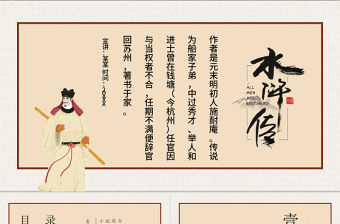 水浒传
ALL
MEN
ARE
BROTHERS
作者是元末明初人施耐庵。传说
为船家子弟，中过秀才、举人和
进士曾在钱塘（今杭州）任官因
与当权者不合，任期不满便辞官
回苏州，著书于家。
宣讲：某某 时间：20XX
目录
壹
小说简介
壹